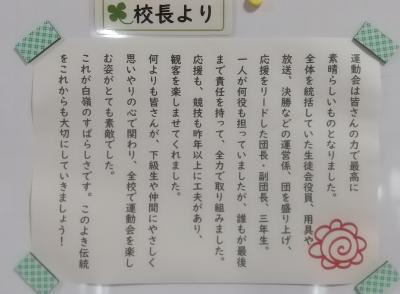 校長より
運動会は皆さんの力で最高に
素晴らしいものとなりました。
全体を統括していた生徒会役員、用具や
放送、決勝などの運営係、団を盛り上げ、
応援をリードした団長・副団長、三年生。
一人が何役も担っていましたが、誰もが最後
まで責任を持って、全力で取り組みました。
応援も、競技も昨年以上に工夫があり、
観客を楽しませてくれました。
何よりも皆さんが、下級生や仲間にやさしく
思いやりの心で関わり、全校で運動会を楽し
む姿がとても素敵でした。
これが白嶺のすばらしさです。このよき伝統
をこれからも大切にしていきましょう！